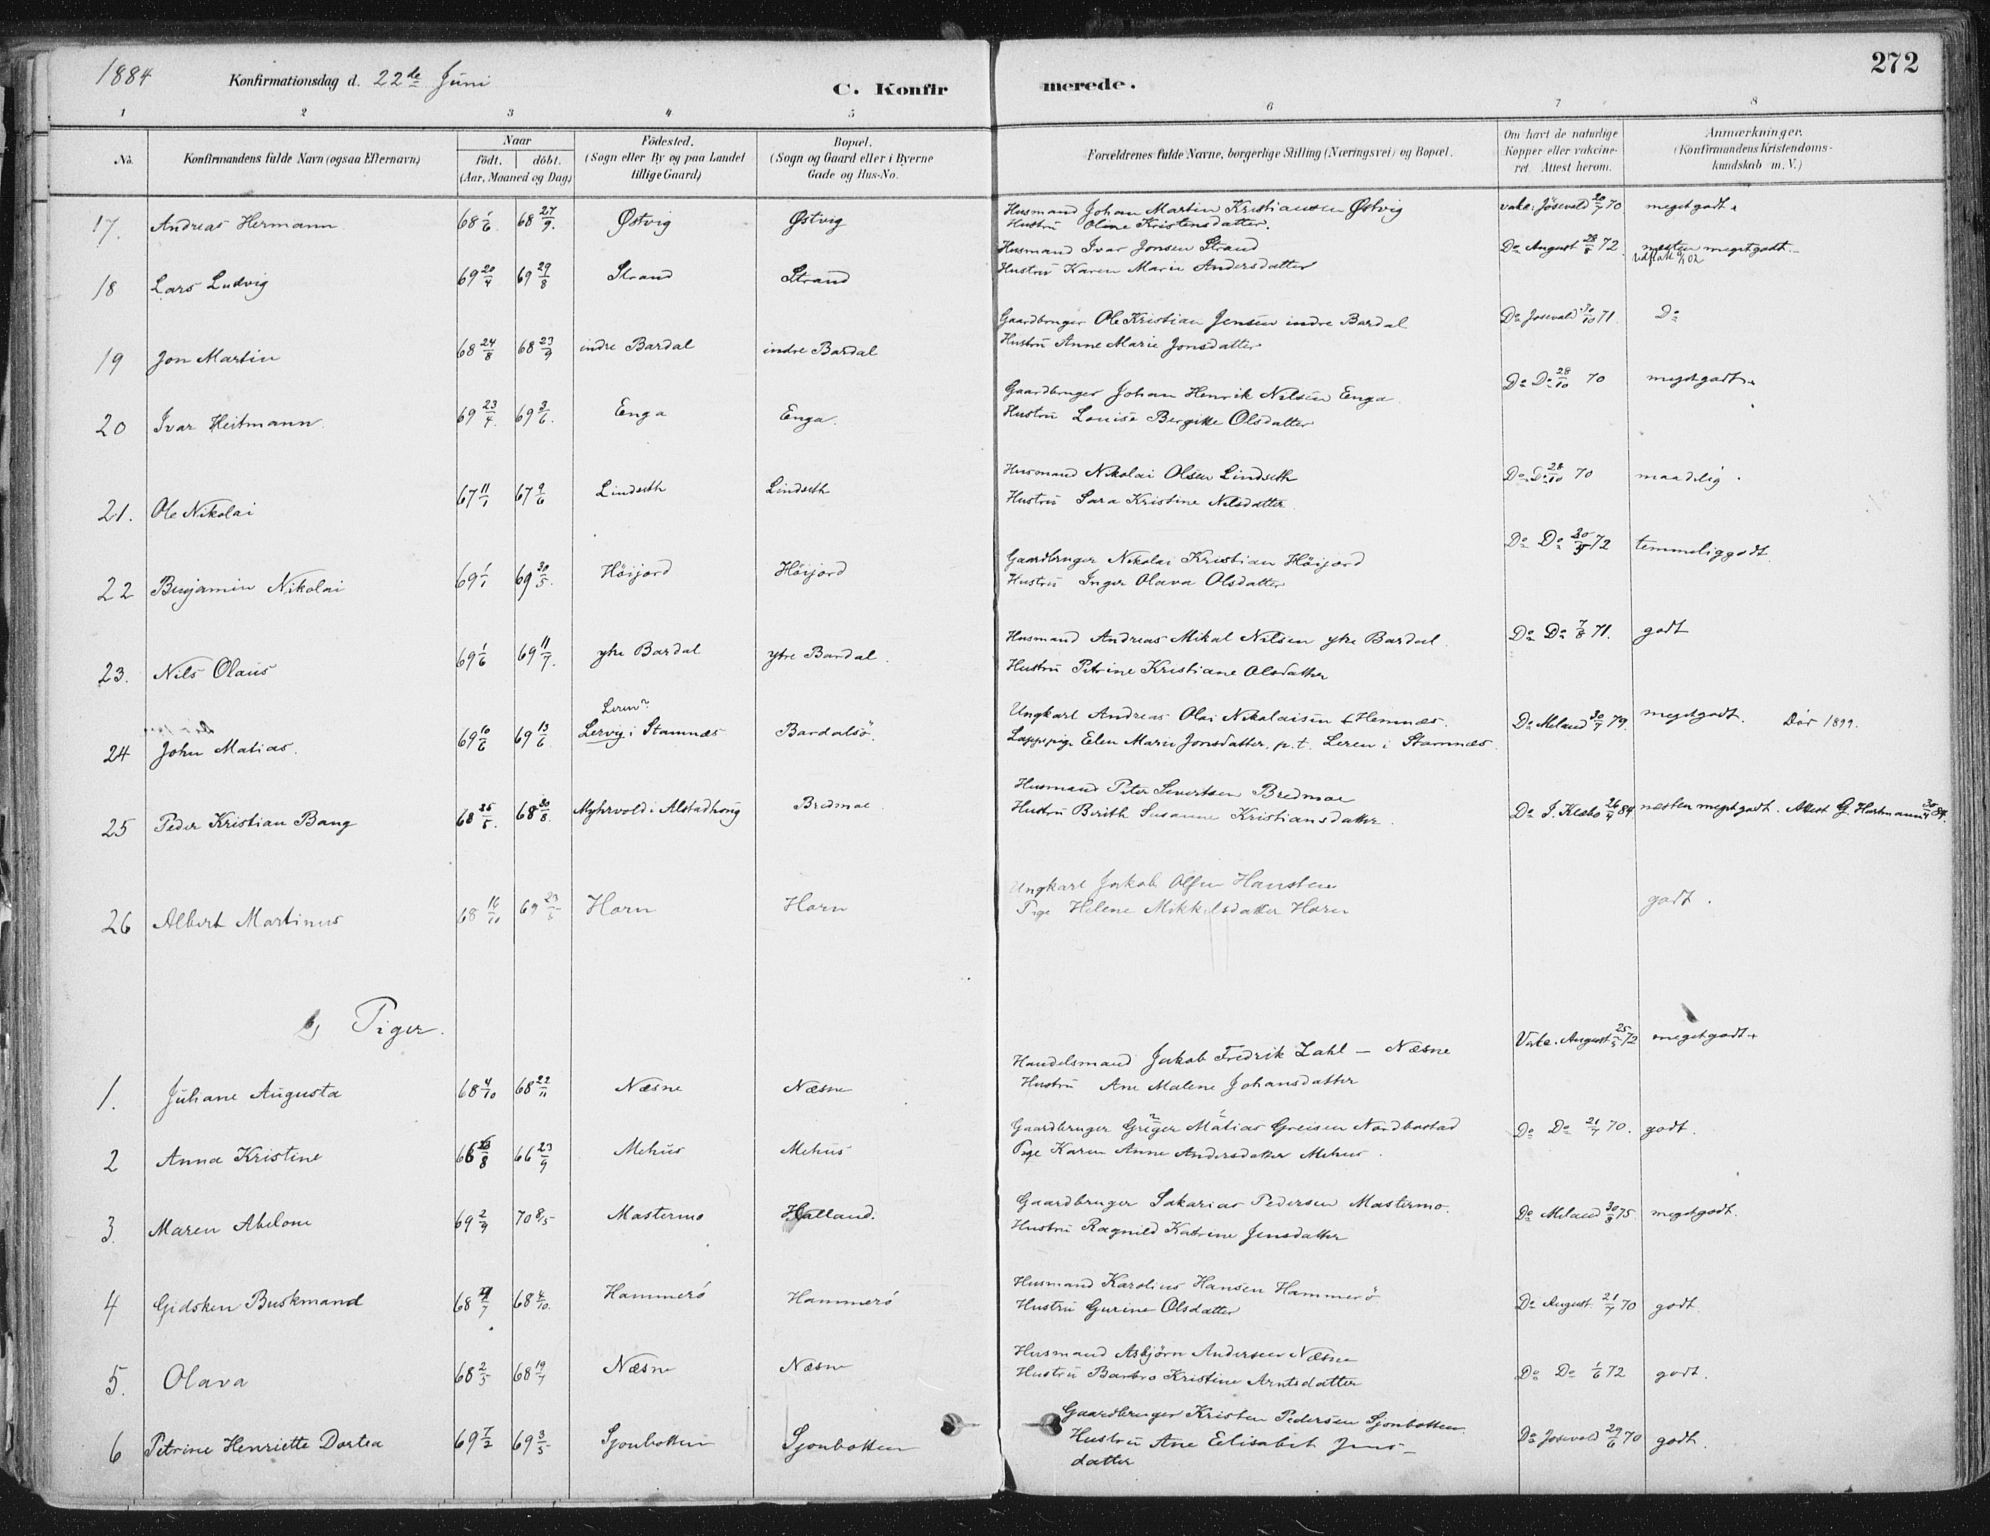 1884 Konfirmationsdag d. 22de Juni C. Konfirmerede. 272
1 2 3 4 5 6 7 8
No. Konfirmandens fulde Navn (ogsaa Efternavn) Naar født. døbt. (Aar, Maaned og Dag) Fødested. (Sogn eller By og paa Landet tillige Gaard) Bopæl. (Sogn og Gaard eller i Byerne Gade og Hus-No. Forældrenes fulde Navne, borgerlige Stilling (Næringsvei) og Bopæl. Om havt de naturlige Kopper eller vakcineret. Attest herom. Anmærkninger. (Konfirmandens Kristendomskundskab m. V.)
17. Andreas Hermann 68 1/6 68 27/9. Østvig Østvig Husmand Johan Martin Kristiansen Østvig vakc. Jösevold 20/7 70 megetgodt.
Hustru Oline Kristensdatter.
18 Lars Ludvig 69 20/4 69 29/8 Strand Strand Husmand Ivar Jonsen Strand Do August 28/8 72 næsten megetgodt.
Hustru Karen Marie Andersdatter
19 Jon Martin 68 24/8 68 23/9 indre Bardal indre Bardal Gaardbruger Ole Kristian Jensen indre Bardal Do Josevold 30/10 71. Do
Hustru Anne Marie Jonsdatter
20 Ivar Heitmann 69 23/4. 69 3/6. Enga Enga. Gaardbruger Johan Henrik Nilsen Enga. Do Do 28/10 70 megetgodt.
Hustru Louise Bergitte Olsdatter
21. Ole Nikolai 67 11/1 67 9/6 Lindseth Lindseth Husmand Nikolai Olsen Lindseth Do Do 28/10 70 maadelig.
Hustru Sara Kristine Nilsdatter
22 Benjamin Nikolai 69 1/1 69 30/5. Höijord Höijord Gaardbruger Nikolai Kristian Höijord Do Do 72 temmeliggodt.
Hustru Inger Olava Olsdatter
23. Nils Olaus 69 1/6 69 11/7. ytre Bardal ytre Bardal. Husmand Andreas Mikal Nilsen ytre Bardal. Do Do 7/8 71. godt
Hustru Petrine Kristiane Olsdatter
Leren?
24 John Matias. 69 10/6 69 13/6 Lervig i Stamnæs Bardalsö. Ungkarl Andreas Olai Nikolaisen Hemnæs. Do Meland 30/7 79. megetgodt. Dör 1899.
Lappepige Elen Marie Jonsdatter, p.t. Leren i Stamnæs.
25 Peder Kristian Bang 68 25/5. 68 30/8. Myhrvold i Alstadhoug Bredmoe Husmand Peter Sivertsen Bredmoe Do J. Klæbo 26/4 84 næsten megetgodt. Attest G. Hartmann 30/4 84.
Hustru Berith Susanne Kristiansdatter.
26 Albert Martinus 68 16/10 69 Horn Horn Ungkarl Jakob Olsen Hansten godt.
Pige Helene Mikkelsdatter Horn
b, Piger.
1. Juliane Augusta 68 4/10 68 22/11 Næsne Næsne Handelsmand Jakob Fredrik Zahl - Næsne Vakc. August 25/5 72 megetgodt.
Hustru Ane Malene Johansdatter
2 Anna Kristine 66 66 23/9 Mehus Mehus Gaardbruger Greger Matias Greisen Nordbostad Do Do 21/7 70. godt.
Pige Karen Anne Andersdatter Mehus.
3. Maren Abelone 69 2/9 70 8/5 Mastermo Halland. Gaardbruger Sakarias Pedersen Mastermo. Do Meland 30/8 75. megetgodt.
Hustru Ragnild Katrine Jensdatter
4 Gidsken Buskmand 68 68 4/10. Hammerö Hammerö Husmand Karolius Hansen Hammerö Do August 21/7 70 godt.
Hustru Gurine Olsdatter
5. Olava 68 2/5 68 19/7 Næsne Næsne Husmand Asbjörn Andersen Næsne Do Do 1/6 72 godt.
Hustru Barbro Kristine Arntsdatter
6 Petrine Henriette Dortea 69 7/2 69 3/5 Sjonbotten Sjonbotten Gaardbruger Kristen Pedersen Sjonbotten Do Josevold 29/6 70 godt.
Hustru Ane Elisabet Jens-
datter